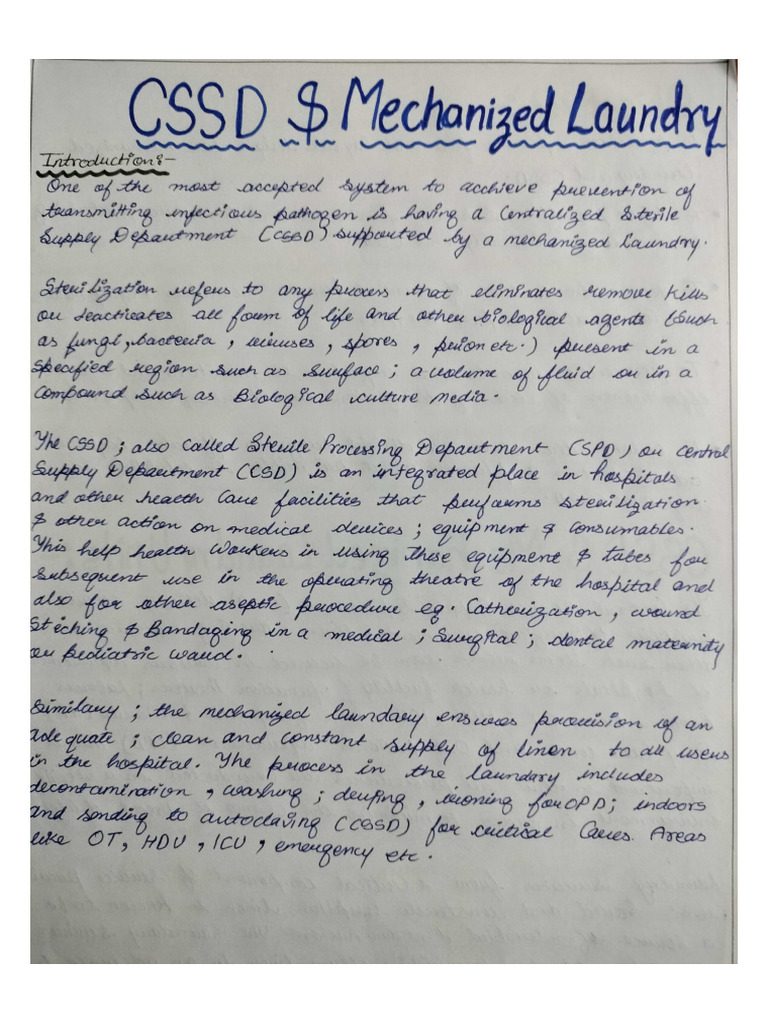 CSSD & Mechanized Laundry
Introduction:-
One of the most accepted system to acchieve prevention of
transmitting infectious pathogen is having a Centralized Sterile
Supply Department (CSSD) supported by a mechanized Laundry.
Sterilization refers to any process that eliminates remove kills
or deactivates all form of life and other biological agents (Such
as fungi, bacteria, viruses, spores, prion etc.) present in a
specified region such as surface; a volume of fluid or in a
compound such as Biological culture media.
The CSSD; also called Sterile Processing Department (SPD) or Central
Supply Department (CSD) is an integrated place in hospitals
and other health care facilities that performs sterilization
& other action on medical devices; equipment & consumables.
This help health workers in using these equipment & tubes for
subsequent use in the operating theatre of the hospital and
also for other aseptic procedure eg. Catherization, wound
Stiching & Bandaging in a medical; Surgital; dental maternity
or Pediatric ward.
Similary; the mechanized laundary ensures provision of an
adequate; clean and constant supply of linen to all users
in the hospital. The process in the laundary includes
decontamination, washing; drying, ironing for OPD; indoors
and sending to autoclaving (CSSD) for critical Cares Areas
like OT, HDU, ICU, emergency etc.